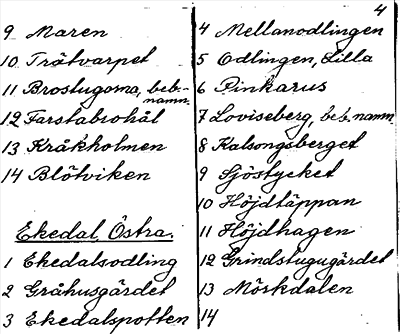 4
9 Maren
10 Trätvarpet
11 Brostugorna, beb.-
namn.
12 Farstabrohål
13 Kråkholmen
14 Blötviken
Ekedal, Östra.
1 Ekedalsodling
2 Gråhusgärdet
3 Ekedalspotten
4 Mellanodlingen
5 Odlingen, Lilla
6 Pinkarus
7 Loviseberg, beb.namn.
8 Kalsongsberget
9 Sjöstycket
10 Höjdtäppan
11 Höjdhagen
12 Grindstugugärdet
13 Möskdalen
14